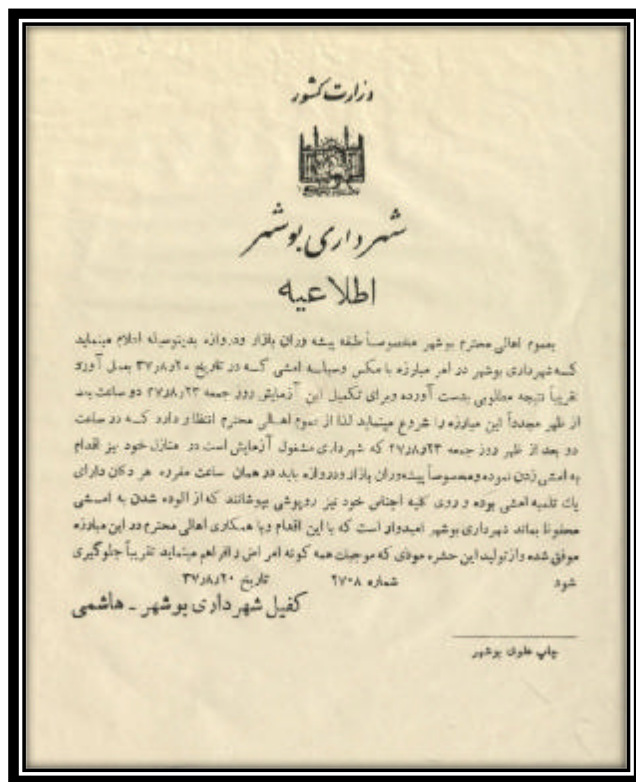 وزارت کشور
شهرداری بوشهر
اطلاعیه
بعموم اهالی محترم بوشهر مخصوصاً طبقه پیشه وران بازار ودروازه بدینوسیله اعلام مینماید
که شهرداری بوشهر در امر مبارزه با مگس وسیله امشی که در تاریخ ۳۷٫۸٫۲۰ بعمل آورد
تقریباً نتیجه مطلوبی بدست آورده وبرای تکمیل این آزمایش روز جمعه ۳۷٫۸٫۲۳ دو ساعت بعد
از ظهر مجدداً این مبارزه را شروع مینماید لذا از عموم اهالی محترم انتظار دارد که در ساعت
دو بعد از ظهر روز جمعه ۳۷٫۸٫۲۳ که شهرداری مشغول آزمایش است در منازل خود نیز اقدام
به امشی زدن نموده ومخصوصاً پیشه‌وران بازار ودروازه باید در همان ساعت مقرره هر دکان دارای
یك تلمبه امشی بوده و روی کلیه اجناس خود نیز روپوشی بپوشانند که از آلوده شدن به امشی
محفوظ بماند شهرداری بوشهر امیدوار است که با این اقدام وبا همکاری اهالی محترم در این مبارزه
موفق شده واز تولید این حشره موذی که موجبات همه گونه امراض را فراهم مینماید تقریباً جلوگیری
شود شماره ۲۷۰۸ تاریخ ۳۷٫۸٫۲۰
کفیل شهرداری بوشهر ـ هاشمی
چاپ علوی بوشهر